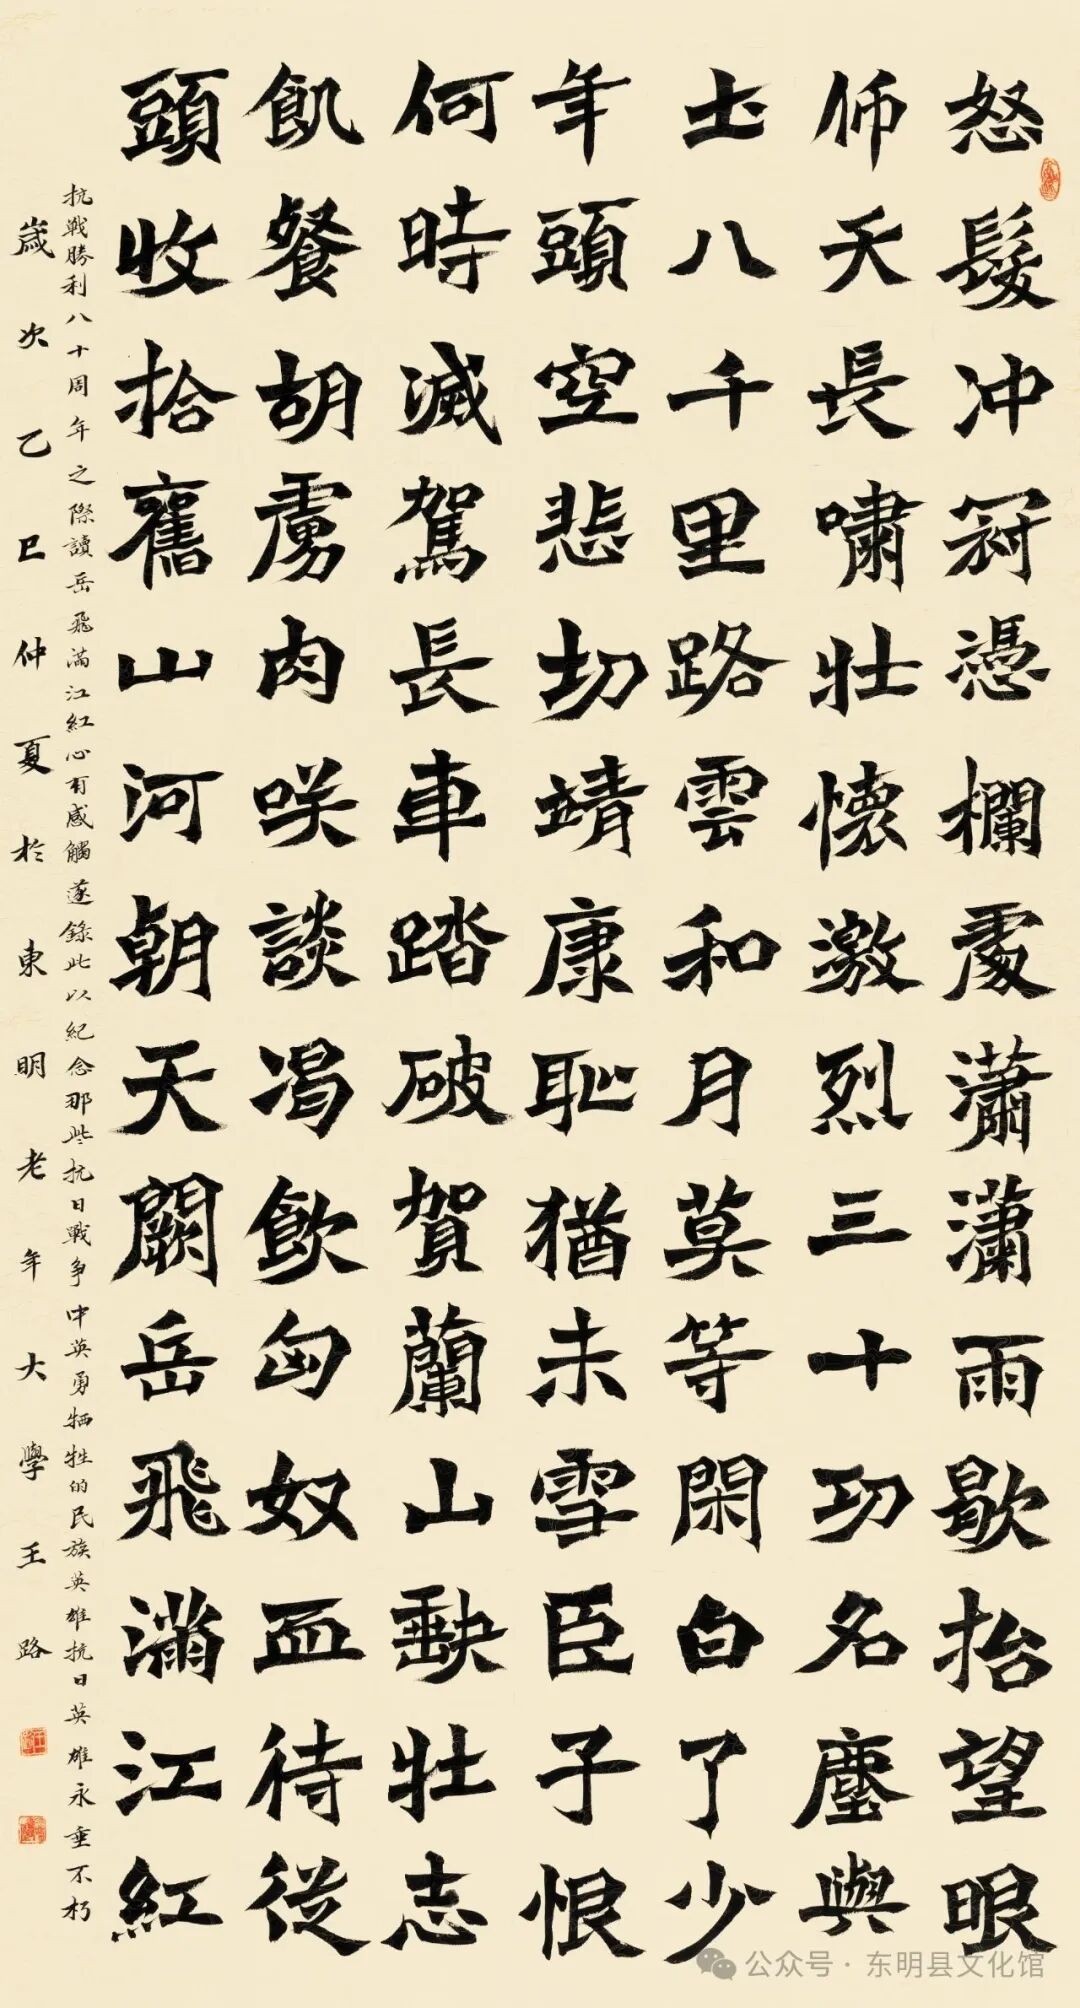 怒髮冲冠憑欄處瀟瀟雨歇抬望眼
仰天長嘯壯懷激烈三十功名塵與
土八千里路雲和月莫等閑白了少
年頭空悲切靖康耻猶未雪臣子恨
何時滅駕長車踏破賀蘭山缺壯志
飢餐胡虜肉咲談渴飲匈奴血待從
頭收拾舊山河朝天闕岳飛滿江紅
抗戰勝利八十周年之際讀岳飛滿江紅心有感觸遂錄此以紀念那些抗日戰争中英勇牺牲的民族英雄抗日英雄永垂不朽
歲次乙巳仲夏於東明老年大學王路
公众号·东明县文化馆